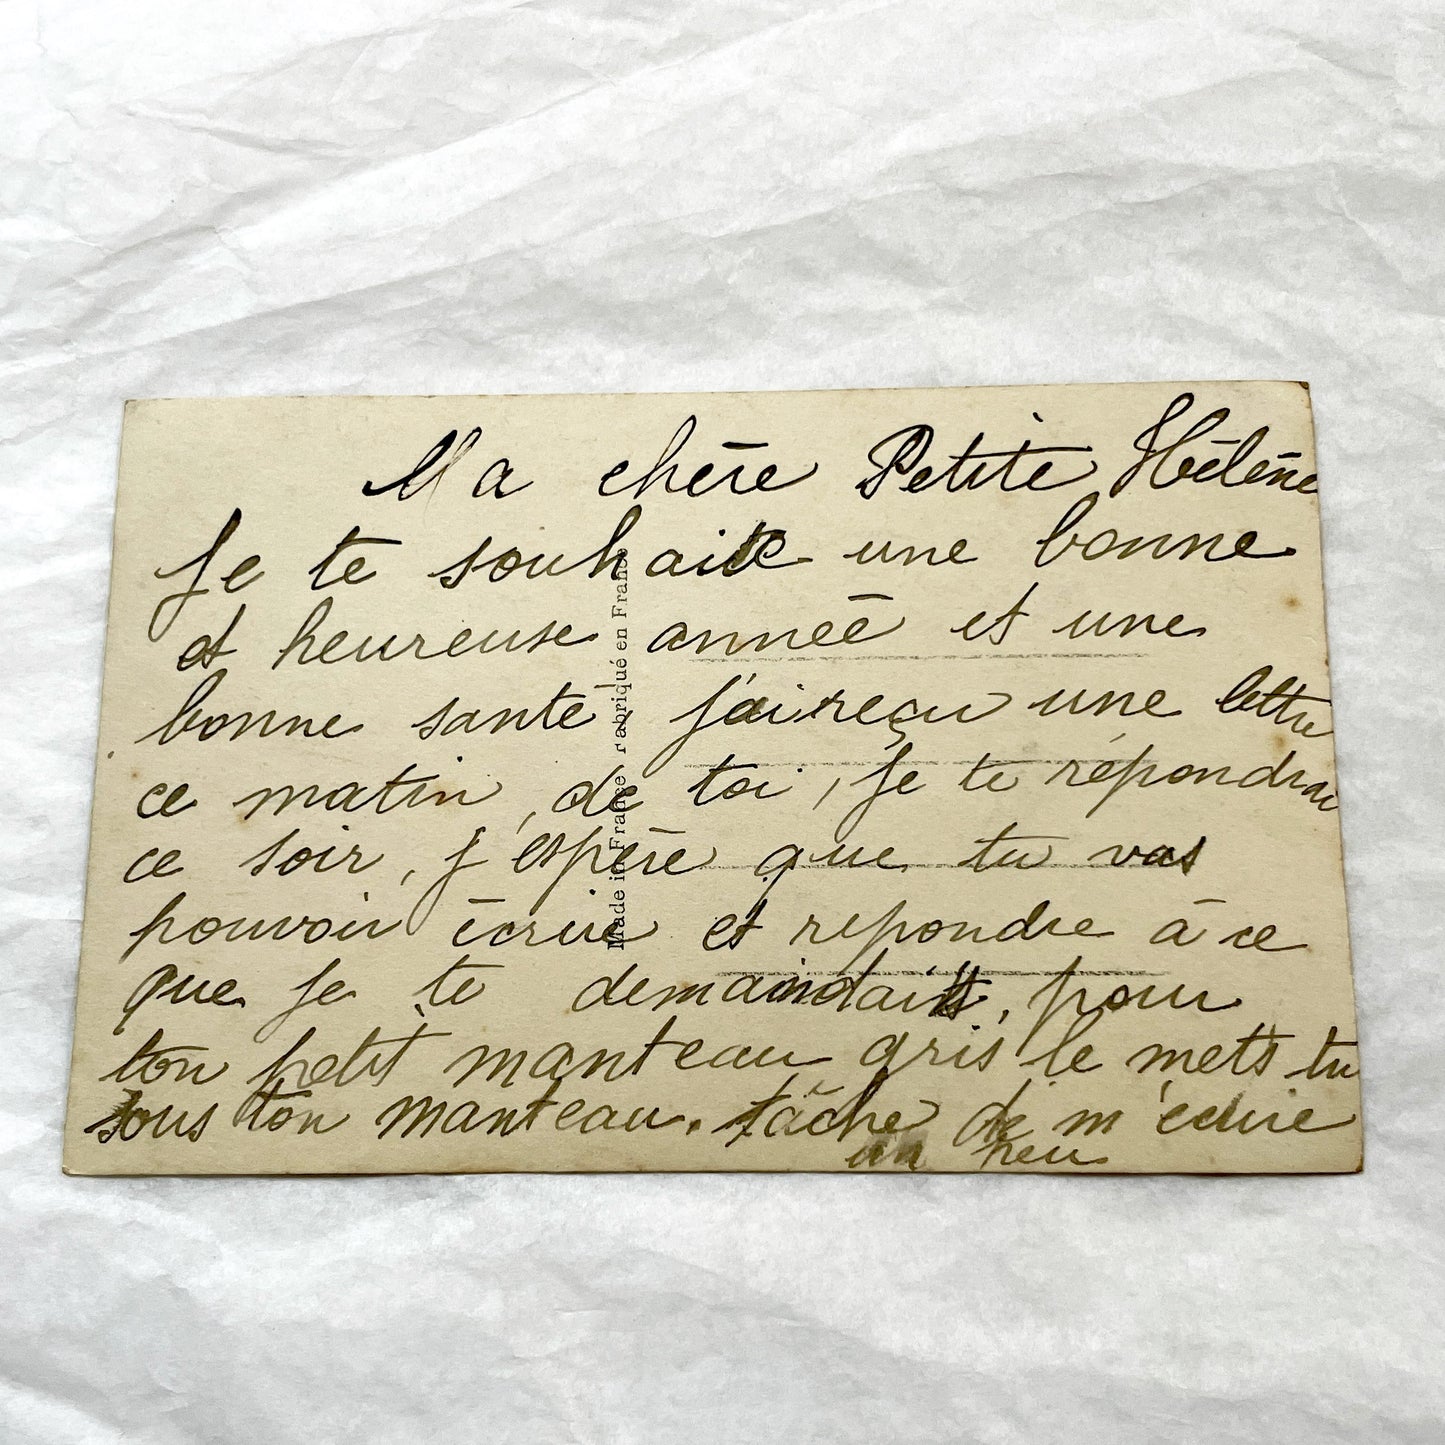 Ma chère Petite Hélène
Je te souhaite une bonne
et heureuse année et une
bonne santé, j'ai reçu une lettre
ce matin, de toi, je te répondrai
ce soir, j'espère que tu vas
pouvoir écrire et repondre à ce
que je te demandais, pour
ton petit manteau gris le mets tu
sous ton manteau. tâche de m'ecrire
un peu
Made in France fabriqué en France